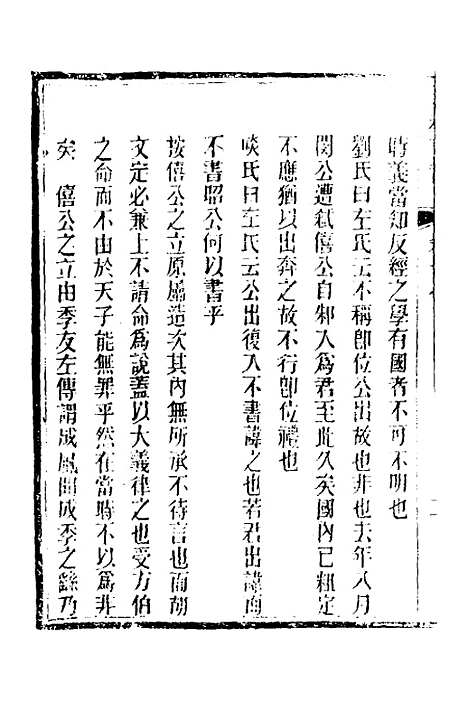 時義當知反經之學有國者不可不明也
劉氏曰左氏云不稱卽位公出故也非也去年八月
閔公遭弒僖公自邾入爲君至此久矣國內已粗定
不應猶以出奔之故不行卽位禮也
啖氏曰左氏云公出復入不書諱之也若君出諱而
不書昭公何以書乎
按僖公之立原屬造次其內無所承不待言也而胡
文定必兼上不請命爲說蓋以大義律之也受方伯
之命而不由於天子能無罪乎然在當時不以爲非
矣　僖公之立由季友左傳謂成風聞成季之繇乃